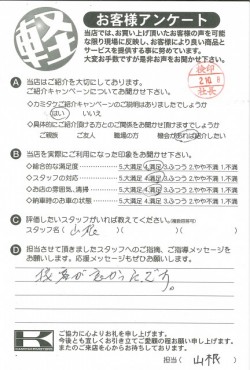 軽
お客様アンケート
当店では、お買い上げ頂いたお客様の声を可能
な限り現場に反映し、お客様により良い商品と
サービスを提供する事に努めています。
大変お手数ですが是非お声をお聞かせ下さい。
A 当店はご紹介を大切にしております。
ご紹介キャンペーンについてお聞かせ下さい。
◇カミタケご紹介キャンペーンのご説明はありましたでしょうか
はい いいえ
◇具体的にご紹介頂ける方とのご関係をお聞かせ頂けますでしょうか
ご親族 ご友人 職場の方 機会が有れば紹介したい
検印
社長
B 当店を実際にご利用になった印象をお聞かせ下さい。
◇総合的な満足度 5.大満足 4.満足 3.ふつう 2.やや不満 1.不満
◇スタッフの対応 5.大満足 4.満足 3.ふつう 2.やや不満 1.不満
◇お店の雰囲気、清掃 5.大満足 4.満足 3.ふつう 2.やや不満 1.不満
◇納車時のお車の状態 5.大満足 4.満足 3.ふつう 2.やや不満 1.不満
C 評価したいスタッフがいれば教えてください。(複数回答可)
スタッフ名( 山根 )
D 担当させて頂きましたスタッフへのご指摘、ご指導メッセージを
お願いします。応援メッセージもぜひお願いします。
接客が良かったです。
K
ご協力に心よりお礼を申し上げます。
今後とも宜しくお引き立てご愛顧の程お願い申し上げます。
またのご来店を心からお待ちしております。
担当( 山根 )